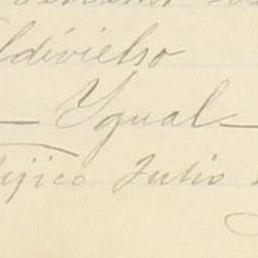 ldivielso
— Ygual —
Méjico Julio